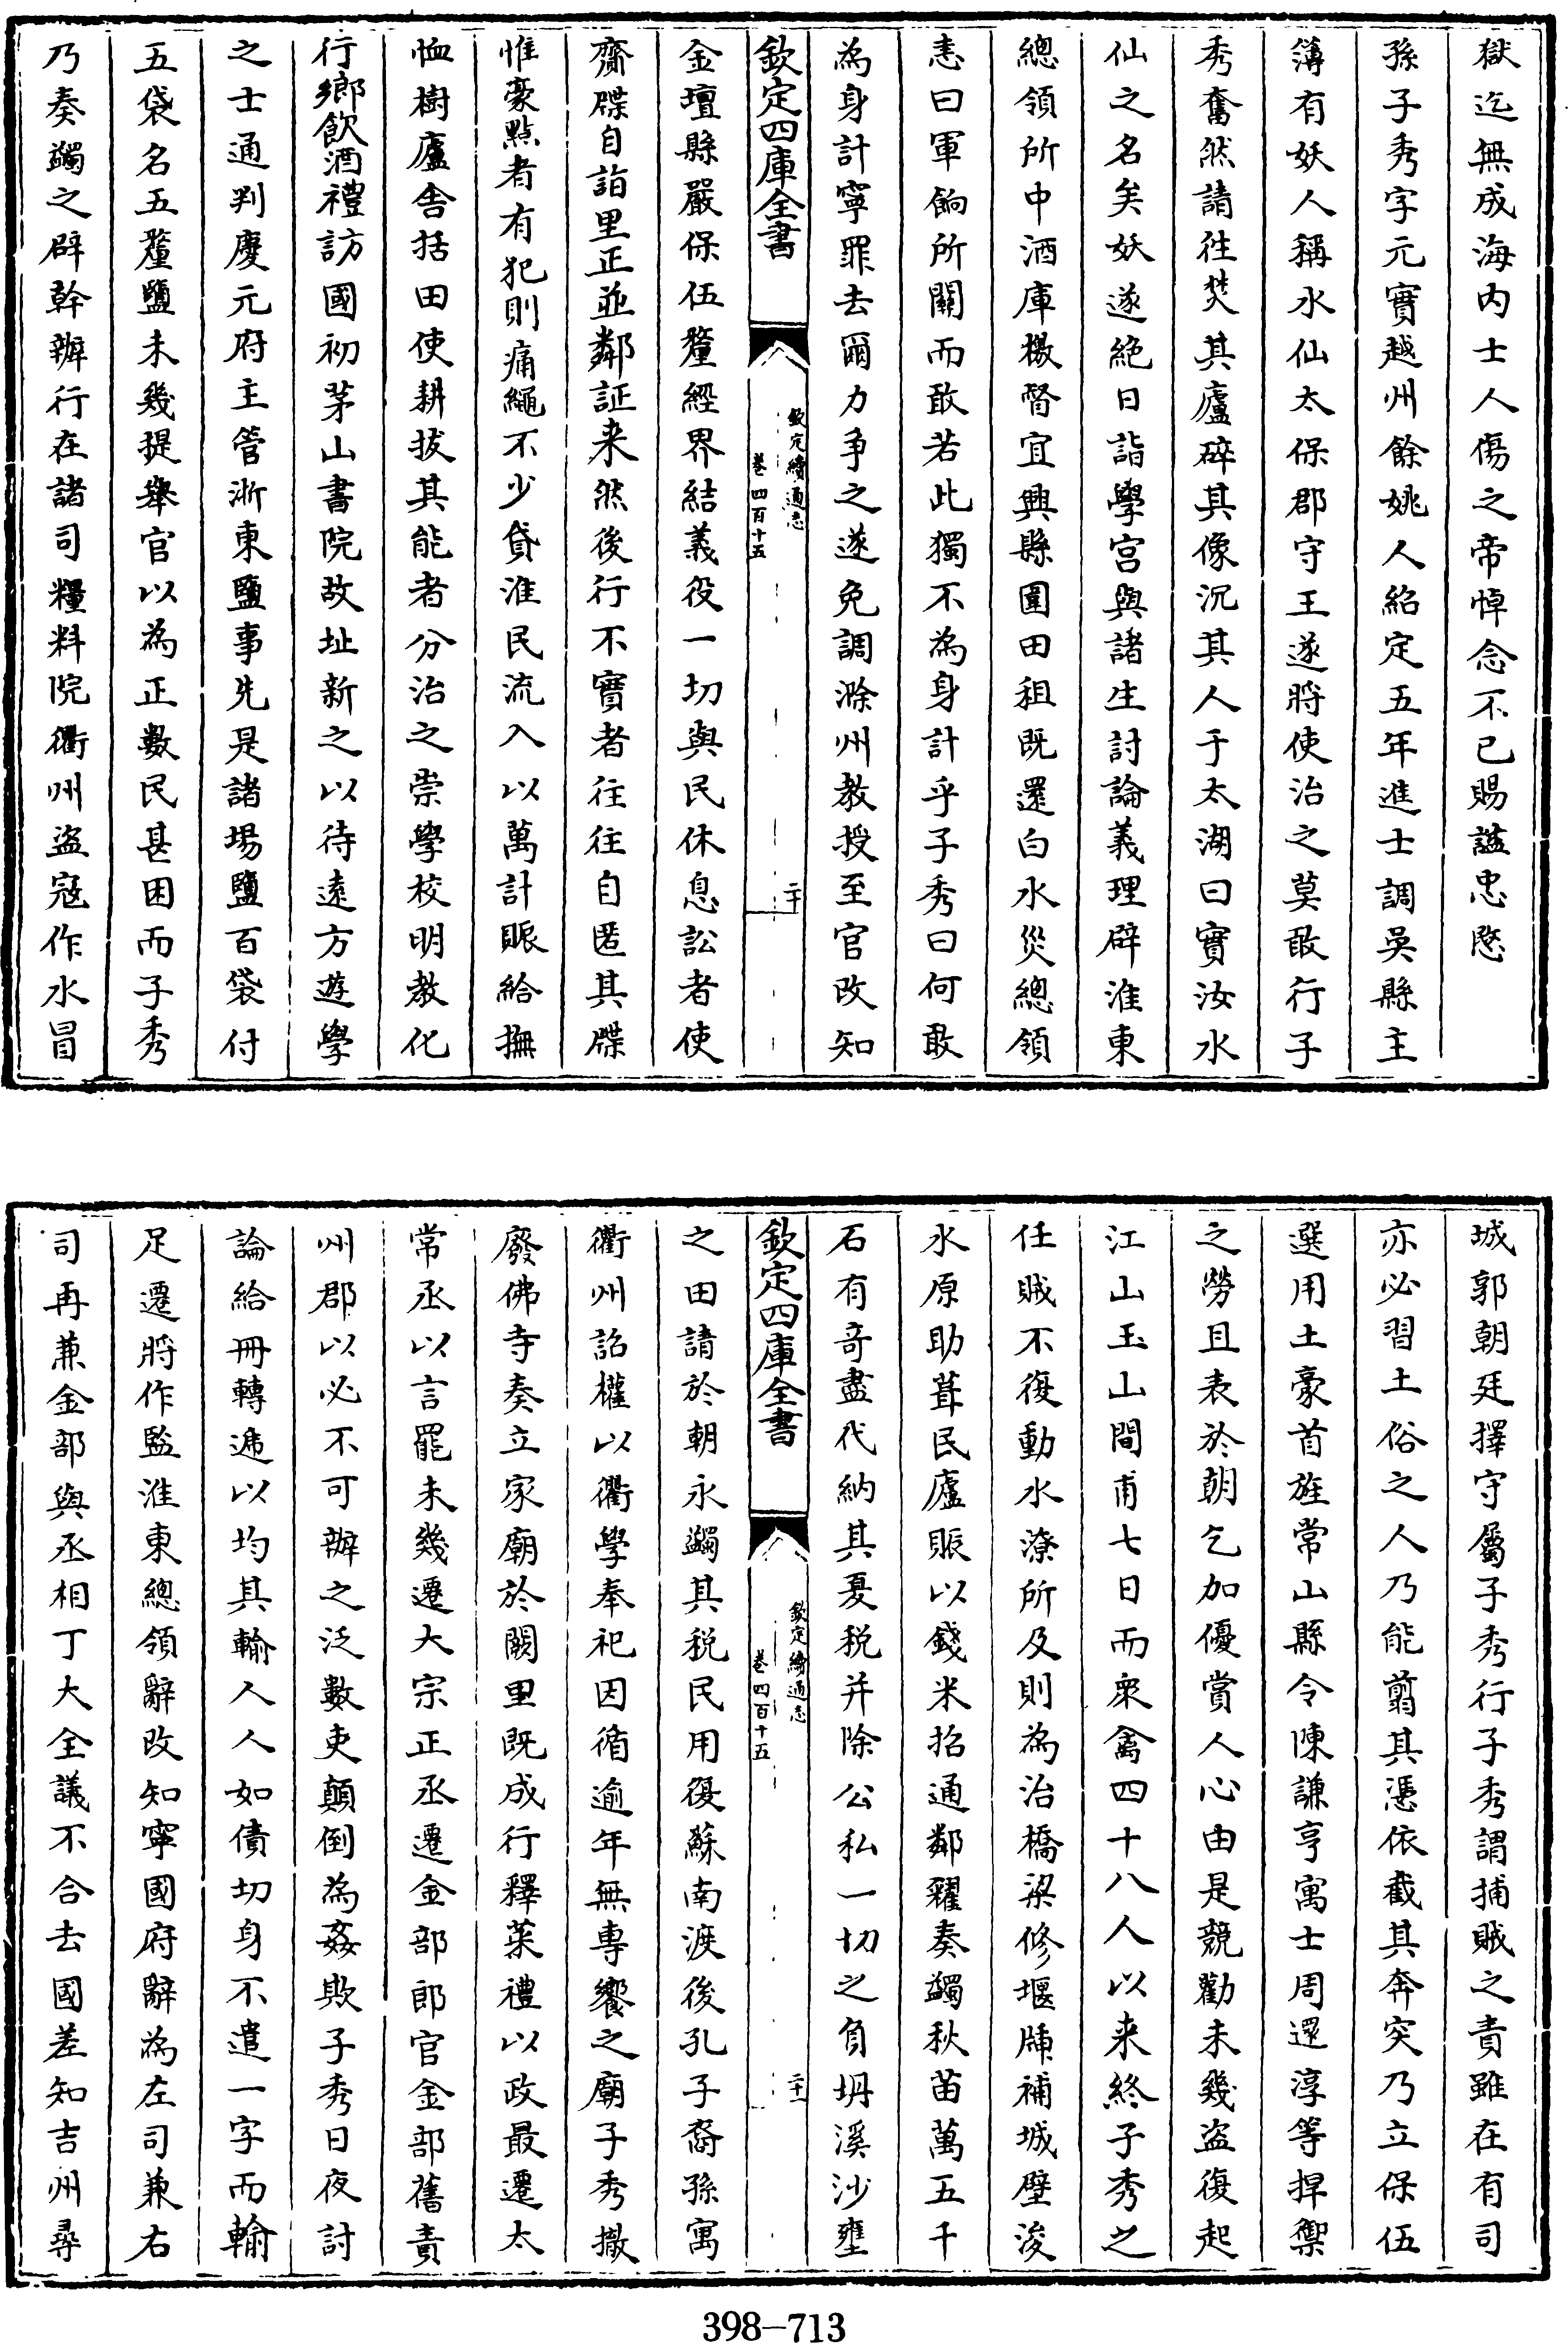 獄迄無成海内士人傷之帝悼念不已賜諡忠愍
孫子秀字元實越州餘姚人紹定五年進士調吳縣主
簿有妖人稱水仙太保郡守王遂將使治之莫敢行子
秀奮然請往焚其廬碎其像沉其人于太湖曰實汝水
仙之名矣妖遂絶日詣學宫與諸生討論義理辟淮東
總領所中酒庫檄督宜興縣圍田租既還白水災總領
恚曰軍餉所關而敢若此獨不為身計乎子秀曰何敢
為身計寧罪去爾力争之遂免調滁州教授至官改知
欽定四庫全書
欽定續通志
卷四百十五
二十
金壇縣嚴保伍釐經界結義役一切與民休息訟者使
齎牒自詣里正並鄰証来然後行不實者往往自匿其牒
惟豪黠者有犯則痛繩不少貸淮民流入以萬計賑給撫
恤樹廬舎括田使耕拔其能者分治之崇學校明教化
行鄉飲酒禮訪國初茅山書院故址新之以待逺方遊學
之士通判慶元府主管浙東鹽事先是諸場鹽百袋付
五袋名五釐鹽未幾提舉官以為正數民甚困而子秀
乃奏蠲之辟幹辦行在諸司糧料院衢州盜冦作水冒
城郭朝廷擇守屬子秀行子秀謂捕賊之責雖在有司
亦必習土俗之人乃能翦其憑依截其奔突乃立保伍
選用土豪首旌常山縣令陳謙亨寓士周還淳等捍禦
之勞且表於朝乞加優賞人心由是競勸未幾盜復起
江山玉山間甫七日而衆禽四十八人以来終子秀之
任賊不復動水潦所及則為治橋梁修堰牐補城壁浚
水原助葺民廬賑以錢米招通鄰糴奏蠲秋苗萬五千
石有竒盡代納其夏税并除公私一切之負坍溪沙壅
欽定四庫全書
欽定續通志
卷四百十五
二十一
之田請於朝永蠲其税民用復蘇南渡後孔子裔孫寓
衢州詔權以衢學奉祀因循逾年無專饗之廟子秀撤
廢佛寺奏立家廟於闕里既成行釋菜禮以政最遷太
常丞以言罷未幾遷大宗正丞遷金部郎官金部舊責
州郡以必不可辦之泛數吏顛倒為姦欺子秀日夜討
論給冊轉逓以均其輸人人如債切身不遣一字而輸
足遷將作監淮東總領辭改知寧國府辭為左司兼右
司再兼金部與丞相丁大全議不合去國差知吉州尋
398-713